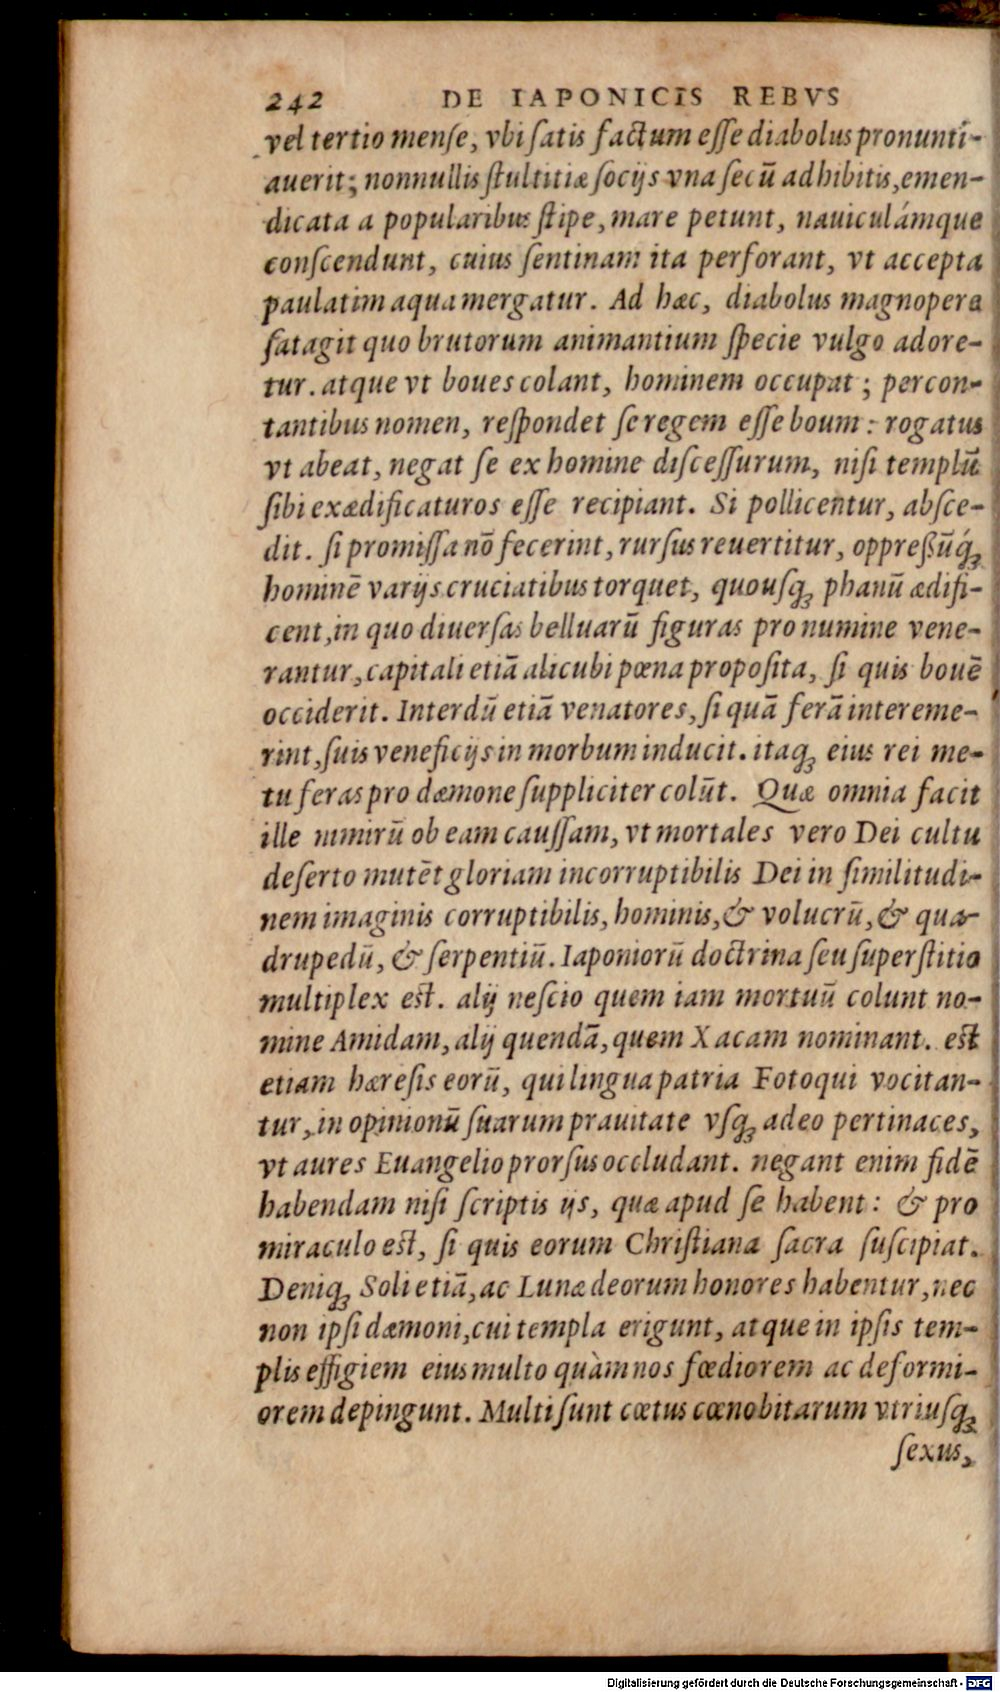 242 DE IAPONICIS REBVS
vel tertio mense, vbi satis factum esse diabolus pronunti-
auerit; nonnullis stultitiæ socijs vna secū adhibitis, emen-
dicata a popularibus stipe, mare petunt, nauiculámque
conscendunt, cuius sentinam ita perforant, vt accepta
paulatim aqua mergatur. Ad hæc, diabolus magnopera
satagit quo brutorum animantium specie vulgo adore-
tur. atque vt boues colant, hominem occupat; percon-
tantibus nomen, respondet se regem esse boum: rogatus
vt abeat, negat se ex homine discessurum, nisi templū
sibi exædificaturos esse recipiant. Si pollicentur, absce-
dit. si promissa nō fecerint, rursus reuertitur, oppreßūq́;
hominē varijs cruciatibus torquet, quousq; phanū ædifi-
cent, in quo diuersas belluarū figuras pro numine vene-
rantur, capitali etiā alicubi pœna proposita, si quis bouē
occiderit. Interdū etiā venatores, si quā ferā intereme-
rint, suis veneficijs in morbum inducit. itaq; eius rei me-
tu feras pro dæmone suppliciter colūt. Quæ omnia facit
ille nimirū ob eam caussam, vt mortales vero Dei cultu
deserto mutēt gloriam incorruptibilis Dei in similitudi-
nem imaginis corruptibilis, hominis, & volucrū, & qua-
drupedū, & serpentiū. Iaponiorū doctrina seu superstitio
multiplex est. alij nescio quem iam mortuū colunt no-
mine Amidam, alij quendā, quem Xacam nominant. est
etiam hæresis eorū, qui lingua patria Fotoqui vocitan-
tur, in opinionū suarum prauitate vsq; adeo pertinaces,
vt aures Euangelio prorsus occludant. negant enim fidē
habendam nisi scriptis ijs, quæ apud se habent: & pro
miraculo est, si quis eorum Christiana sacra suscipiat.
Deniq; Soli etiā, ac Lunæ deorum honores habentur, nec
non ipsi dæmoni, cui templa erigunt, atque in ipsis tem-
plis effigiem eius multo quàm nos fœdiorem ac deformi-
orem depingunt. Multi sunt cœtus cœnobitarum vtriusq;
sexus,
Digitalisierung gefördert durch die Deutsche Forschungsgemeinschaft - DFG